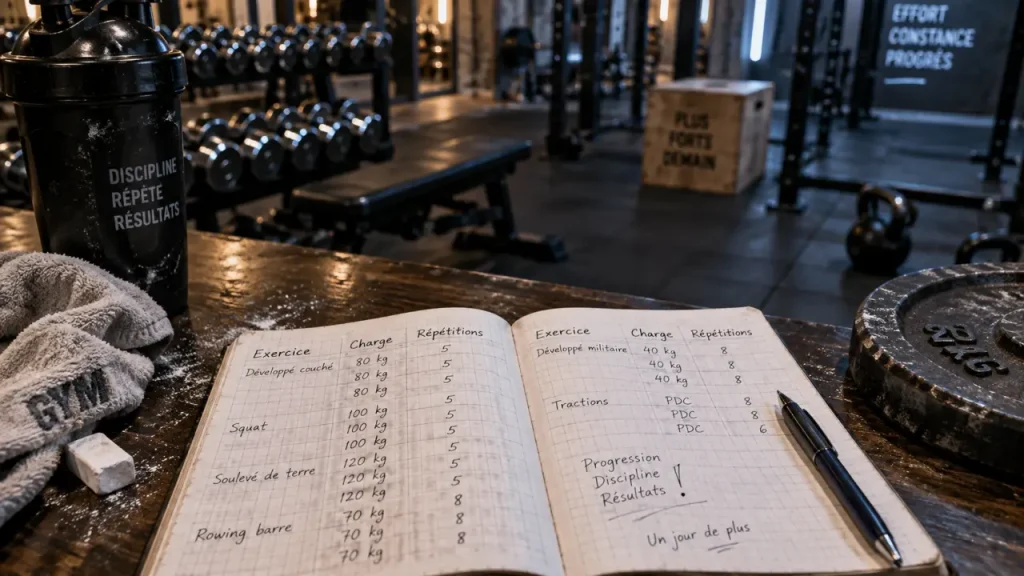 DISCIPLINE
RÉPÈTE
RÉSULTATS
EFFORT
CONSTANCE
PROGRÈS
PLUS
FORTS
DEMAIN
GYM
KG
Exercice Charge Répétitions
Développé couché 80 kg 5
80 kg 5
80 kg 5
Squat 100 kg 5
100 kg 5
100 kg 5
Soulevé de terre 120 kg 5
120 kg 5
120 kg 5
Rowing barre 70 kg 8
70 kg 8
70 kg 8
Exercice Charge Répétitions
Développé militaire 40 kg 8
40 kg 8
40 kg 8
Tractions PDC 8
PDC 8
PDC 6
Progression
Discipline
Résultats !
Un jour de plus